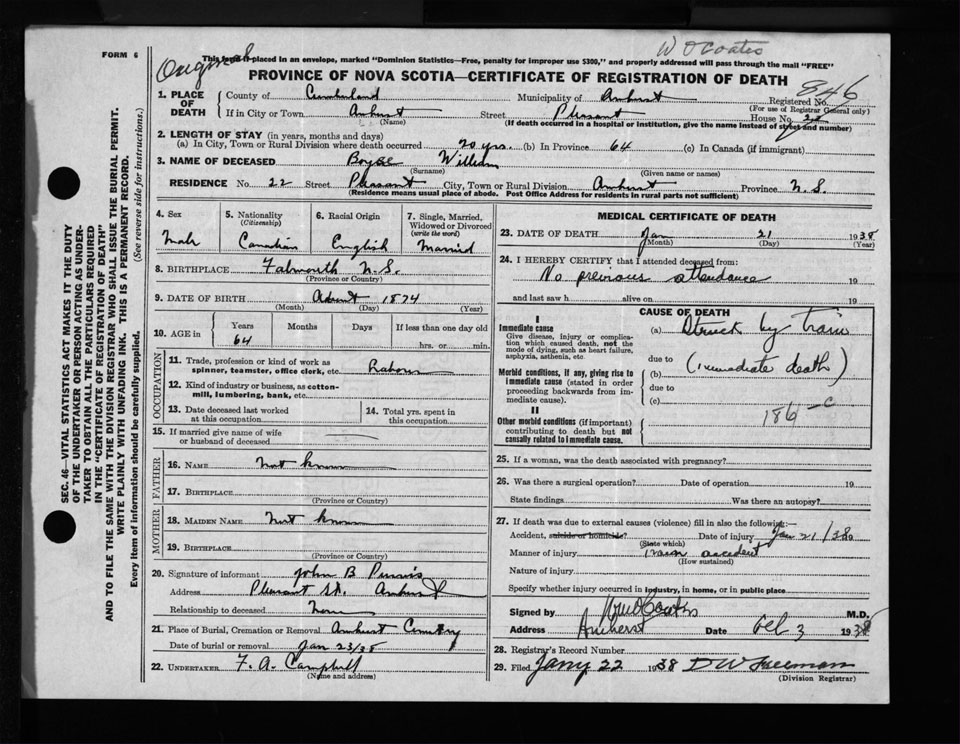 W O Coates
FORM 6
Original
This form if placed in an envelope, marked "Dominion Statistics—Free, penalty for improper use $300," and properly addressed will pass through the mail "FREE"
PROVINCE OF NOVA SCOTIA—CERTIFICATE OF REGISTRATION OF DEATH
846
1. PLACE OF DEATH County of Cumberland Municipality of Amherst Registered No.
(For use of Registrar General only)
If in City or Town Amherst Street Pleasant House No. 22
(Name) (If death occurred in a hospital or institution, give the name instead of street and number)
2. LENGTH OF STAY (in years, months and days)
(a) In City, Town or Rural Division where death occurred 20 yrs. (b) In Province 64 (c) In Canada (if immigrant)
3. NAME OF DECEASED William
(Surname) (Given name or names)
RESIDENCE No. 22 Street Pleasant City, Town or Rural Division Amherst Province N.S.
(Residence means usual place of abode. Post Office Address for residents in rural parts not sufficient)
4. Sex 5. Nationality 6. Racial Origin 7. Single, Married, Widowed or Divorced
(Citizenship) (write the word)
Male Canadian English Married
8. BIRTHPLACE Falmouth N.S.
(Province or Country)
9. DATE OF BIRTH 1874
(Month) (Day) (Year)
10. AGE in Years Months Days If less than one day old
64 hrs. or min.
OCCUPATION
11. Trade, profession or kind of work as spinner, teamster, office clerk, etc. Laborer
12. Kind of industry or business, as cotton-mill, lumbering, bank, etc.
13. Date deceased last worked at this occupation
14. Total yrs. spent in this occupation
15. If married give name of wife or husband of deceased
FATHER
16. NAME Not known
17. BIRTHPLACE
(Province or Country)
MOTHER
18. MAIDEN NAME Not known
19. BIRTHPLACE
(Province or Country)
20. Signature of informant John B
Address Pleasant St. Amherst
Relationship to deceased None
21. Place of Burial, Cremation or Removal Amherst Cemetery
Date of burial or removal Jan 23/38
22. UNDERTAKER F. A. Campbell
(Name and address)
MEDICAL CERTIFICATE OF DEATH
23. DATE OF DEATH Jan 21 1938
(Month) (Day) (Year)
24. I HEREBY CERTIFY that I attended deceased from:
No previous attendance 19
and last saw h alive on 19
CAUSE OF DEATH
I
Immediate cause
Give disease, injury or complication which caused death, not the mode of dying, such as heart failure, asphyxia, asthenia, etc.
(a) Struck by train
due to
Morbid conditions, if any, giving rise to immediate cause (stated in order proceeding backwards from immediate cause).
(b) (immediate death)
due to
(c)
II
Other morbid conditions (if important) contributing to death but not causally related to immediate cause.
186-c
25. If a woman, was the death associated with pregnancy?
26. Was there a surgical operation? Date of operation 19
State findings Was there an autopsy?
27. If death was due to external causes (violence) fill in also the following:—
Accident, suicide or homicide? Date of injury Jan 21/38 19
(State which)
Manner of injury train accident
(How sustained)
Nature of injury
Specify whether injury occurred in industry, in home, or in public place
Signed by Wm O Coates M.D.
Address Amherst Date Feb 3 1938
28. Registrar's Record Number
29. Filed Jany 22 1938 D W Freeman
(Division Registrar)
SEC. 46—VITAL STATISTICS ACT MAKES IT THE DUTY
OF THE UNDERTAKER OR PERSON ACTING AS UNDER-
TAKER TO OBTAIN ALL THE PARTICULARS REQUIRED
IN THE "CERTIFICATE OF REGISTRATION OF DEATH"
AND TO FILE THE SAME WITH THE DIVISION REGISTRAR WHO SHALL ISSUE THE BURIAL PERMIT.
WRITE PLAINLY WITH UNFADING INK. THIS IS A PERMANENT RECORD.
Every item of information should be carefully supplied. (See reverse side for instructions.)